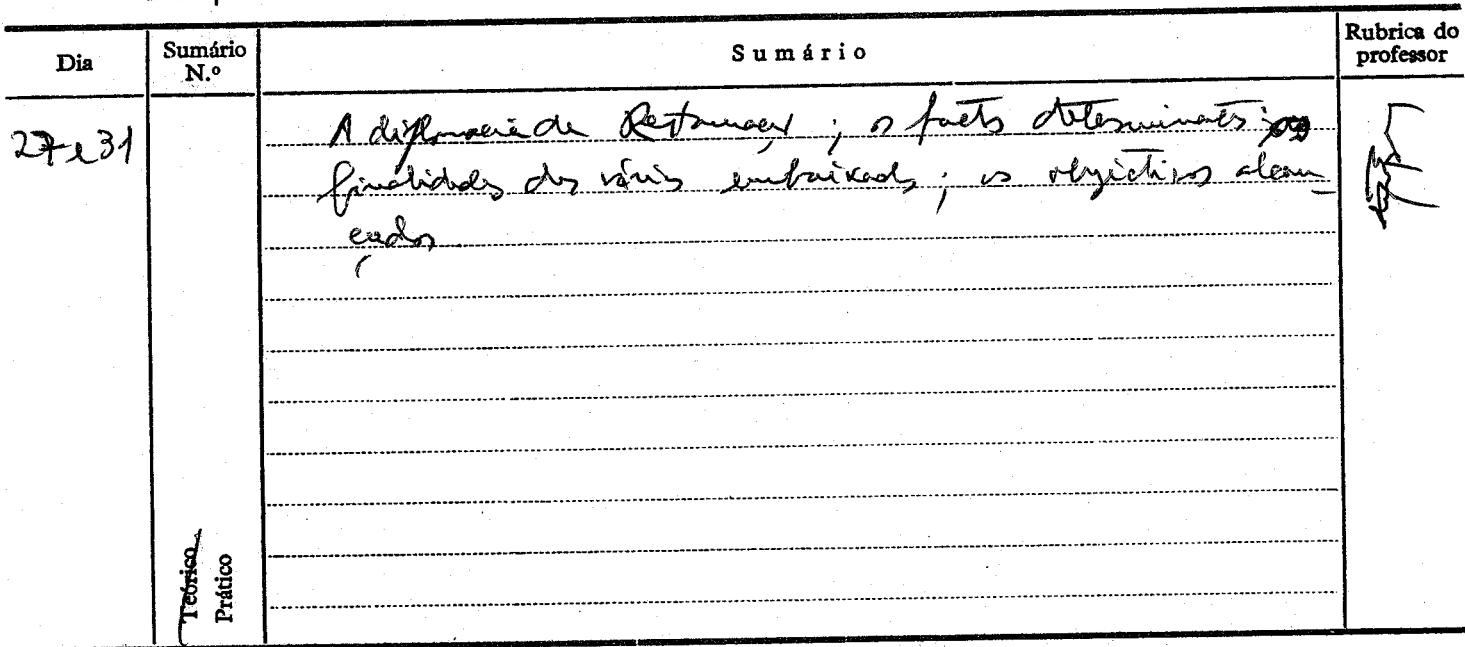 Dia
Sumário N.º
Sumário
Rubrica do professor
27 e 31
A diplomacia da Restauração; os factos determinantes;
finalidades das várias embaixadas; os objectivos alcan
çados
Teórico
Prático